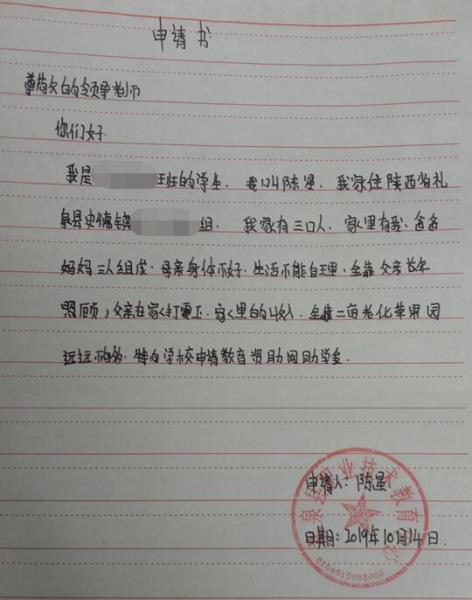 申请书
尊敬的领导老师
你们好
我是 班的学生．我叫陈星．我家住陕西省礼
泉县史德镇 组．我家有三口人．家里有我．爸爸
妈妈三人组成．母亲身体不好．生活不能自理．全靠父亲长年
照顾，父亲在家打零工．家里的收入．全靠二亩老化苹果园
远远不够．特向学校申请教育资助网助学金．
申请人：陈星
日期：2019年10月14日．
泉县 业技术教育 心
6104010095000